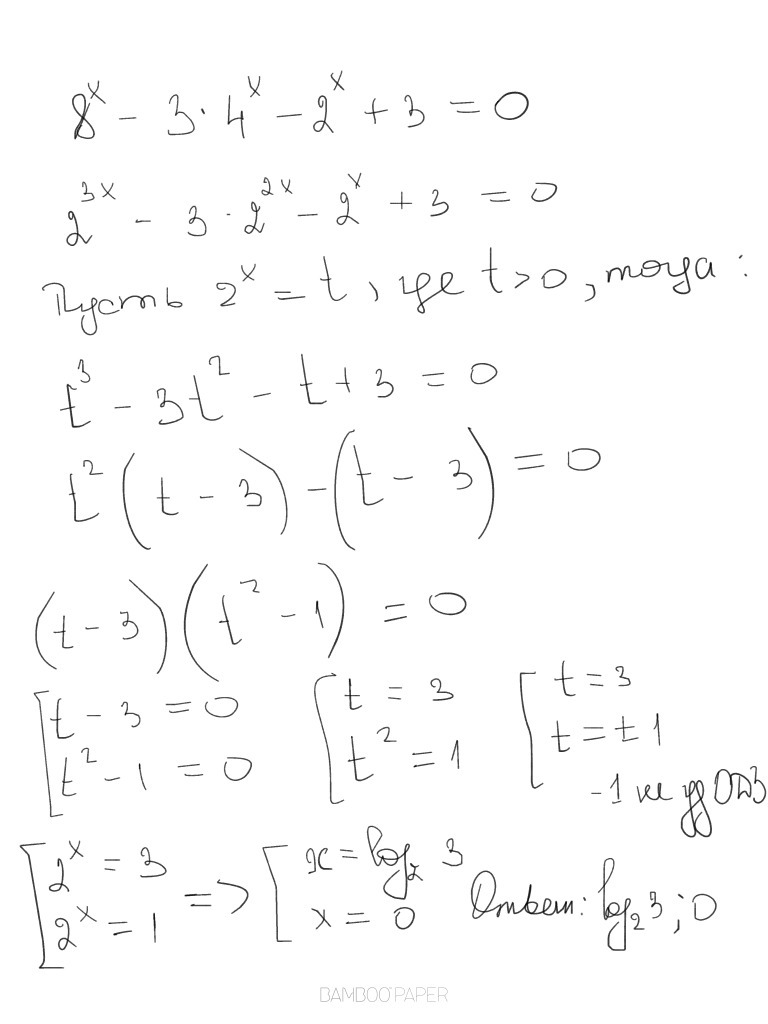 8^x - 3·4^x - 2^x + 3 = 0
2^{3x} - 3·2^{2x} - 2^x + 3 = 0
Пусть 2^x = t, где t>0, тогда:
t^3 - 3t^2 - t + 3 = 0
t^2(t - 3) - (t - 3) = 0
(t - 3)(t^2 - 1) = 0
[t - 3 = 0 [t = 3 [t = 3
t^2 - 1 = 0 t^2 = 1 t = ±1
-1 не уд ОДЗ
[2^x = 3 => [x = log_2 3 Ответ: log_2 3; 0
2^x = 1 x = 0
BAMBOO PAPER